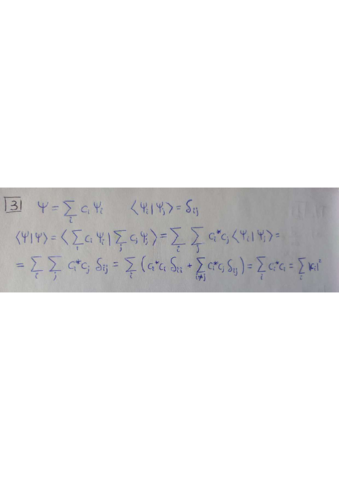 3) Ψ = ∑_i c_i Ψ_i ⟨Ψ_i|Ψ_j⟩ = δ_ij
⟨Ψ|Ψ⟩ = ⟨∑_i c_i Ψ_i | ∑_j c_j Ψ_j⟩ = ∑_i ∑_j c_i* c_j ⟨Ψ_i|Ψ_j⟩ =
= ∑_i ∑_j c_i* c_j δ_ij = ∑_i (c_i* c_i δ_ii + ∑_{i≠j} c_i* c_j δ_ij) = ∑_i c_i* c_i = ∑_i |c_i|²